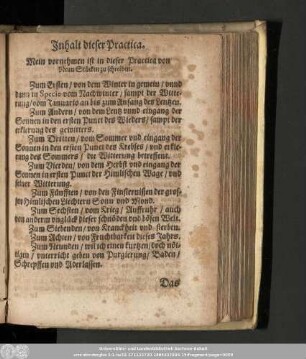 Inhalt dieser Practica.
Mein vornehmen ist in dieser Practica von
zu schreiben.
Zum Ersten / von dem Winter in gemein / vnnd
dann in Specie vom Nachwinter / sampt der Witte-
rung / vom Januario an bis zum Anfang des Lentzen.
Zum Andern / von dem Lentz vnnd eingang der
Sonnen in den ersten Punct des Wieders / sampt der
erklerung des gewitters.
Zum Dritten / vom Sommer vnd eingang der
Sonnen in den ersten Punct des Krebses / vnd erkle-
rung des Sommers / die Witterung betreffent.
Zum Vierden / von dem Herbst vnd eingang der
Sonnen in ersten Punct der Himlischen Wage / vnd
seiner Witterung.
Zum Fünfften / von den Finsternissen der gros-
sen Himlischen Liechtern Sonn vnd Mond.
Zum Sechsten / vom Krieg / Auffruhr / auch
von anderm vnglück dieser schnöden vnd bösen Welt.
Zum Siebenden / von Kranckheit vnd sterben.
Zum Achten / von Fruchtbarkeit dieses Jahrs.
Zum Neunden / wil ich einen kurtzen / doch nöti-
gen / vnterricht geben von Purgierung / Baden /
Schrepffen vnd Aderlassen.
Das